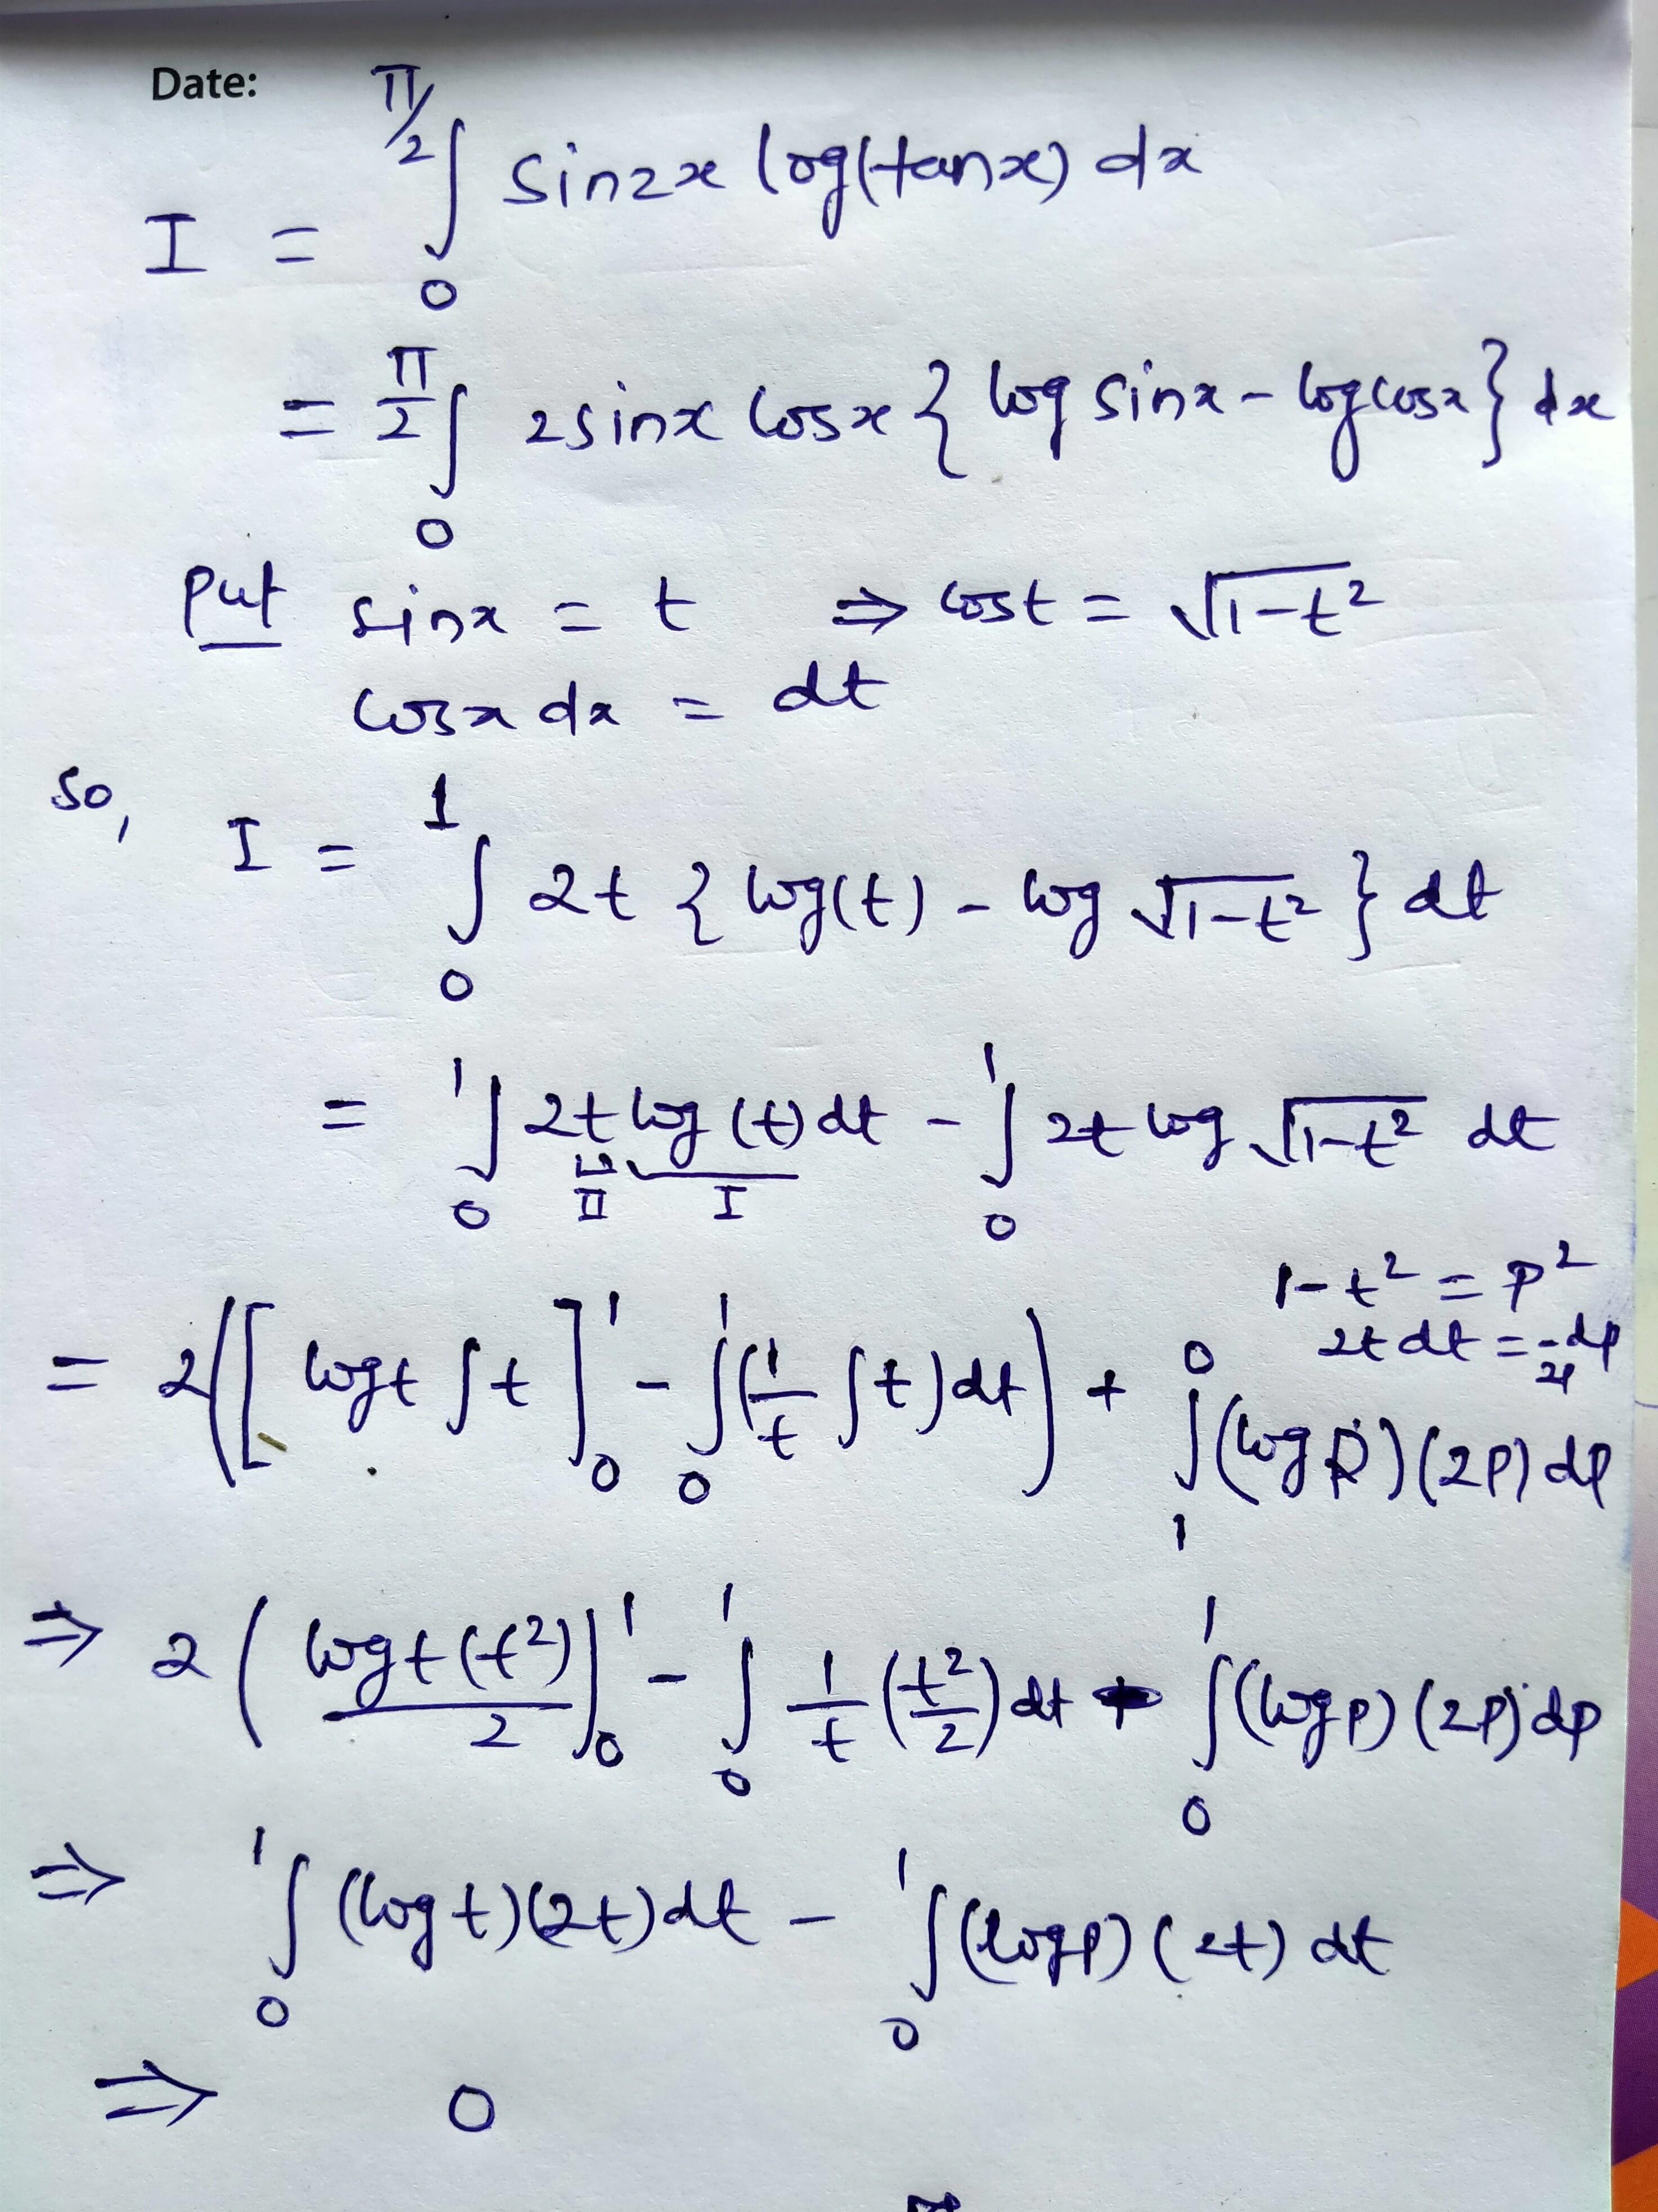 Date:
I = ∫₀^{π/2} sin2x log(tanx) dx
= ∫₀^{π/2} 2sinx cosx { log sinx - log cosx } dx
Put sinx = t ⇒ cost = √(1-t²)
cosx dx = dt
So, I = ∫₀¹ 2t { log(t) - log √(1-t²) } dt
= ∫₀¹ 2t log(t) dt - ∫₀¹ 2t log √(1-t²) dt
II I
1-t² = p²
2t dt = -dp
2p
= 2([ logt ∫t ]₀¹ - ∫₀¹ (1/t ∫t) dt) + ∫₁⁰ (log p) (2p) dp
⇒ 2( logt (t²)/2 |₀¹ - ∫₀¹ 1/t (t²/2) dt - ∫₀¹ (log p) (2p) dp
⇒ ∫₀¹ (log t)(2t) dt - ∫₀¹ (log p) (2t) dt
⇒ 0